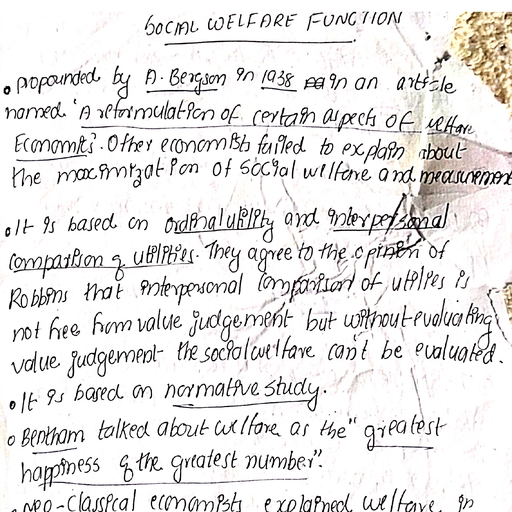 SOCIAL WELFARE FUNCTION
• propounded by A. Bergson in 1938 in an article
named 'A reformulation of certain aspects of welfare
Economics'. Other economists failed to explain about
the maximization of social welfare and measurement
• It is based on ordinal utility and interpersonal
comparison of utilities. They agree to the opinion of
Robbins that interpersonal comparison of utilities is
not free from value judgement but without evaluating
value judgement the social welfare can't be evaluated.
• It is based on normative study.
• Bentham talked about welfare as the "greatest
happiness of the greatest number".
• Neo-classical economists explained welfare in